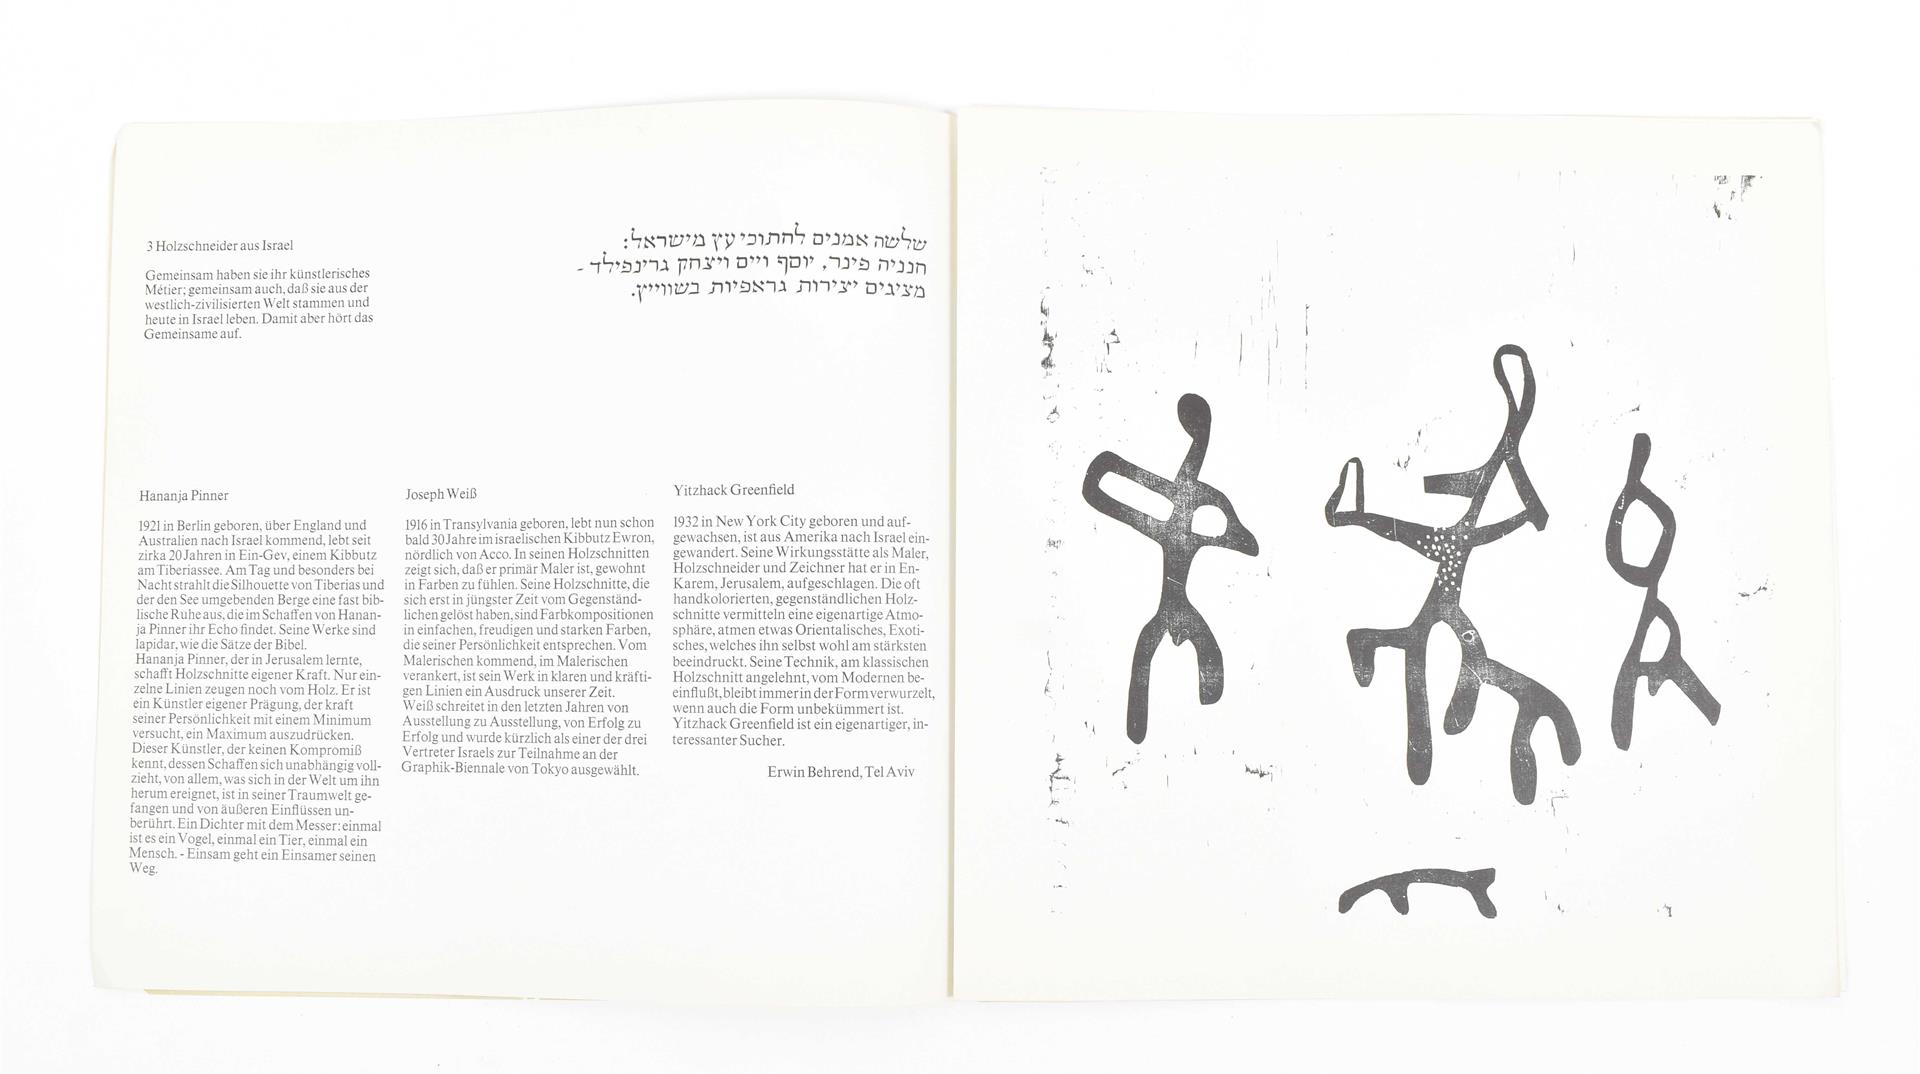 3 Holzschneider aus Israel
Gemeinsam haben sie ihr künstlerisches
Métier; gemeinsam auch, daß sie aus der
westlich-zivilisierten Welt stammen und
heute in Israel leben. Damit aber hört das
Gemeinsame auf.
שלשה אמנים לחתוכי עץ מישראל:
חנניה פינר, יוסף וייס ויצחק גרינפילד -
מציגים יצירות גראפיות בשווייץ.
Hananja Pinner
1921 in Berlin geboren, über England und
Australien nach Israel kommend, lebt seit
zirka 20 Jahren in Ein-Gev, einem Kibbutz
am Tiberiassee. Am Tag und besonders bei
Nacht strahlt die Silhouette von Tiberias und
der den See umgebenden Berge eine fast bib-
lische Ruhe aus, die im Schaffen von Hanan-
ja Pinner ihr Echo findet. Seine Werke sind
lapidar, wie die Sätze der Bibel.
Hananja Pinner, der in Jerusalem lernte,
schafft Holzschnitte eigener Kraft. Nur ein-
zelne Linien zeugen noch vom Holz. Er ist
ein Künstler eigener Prägung, der kraft
seiner Persönlichkeit mit einem Minimum
versucht, ein Maximum auszudrücken.
Dieser Künstler, der keinen Kompromiß
kennt, dessen Schaffen sich unabhängig voll-
zieht, von allem, was sich in der Welt um ihn
herum ereignet, ist in seiner Traumwelt ge-
fangen und von äußeren Einflüssen un-
berührt. Ein Dichter mit dem Messer: einmal
ist es ein Vogel, einmal ein Tier, einmal ein
Mensch. - Einsam geht ein Einsamer seinen
Weg.
Joseph Weiß
1916 in Transylvania geboren, lebt nun schon
bald 30 Jahre im israelischen Kibbutz Ewron,
nördlich von Acco. In seinen Holzschnitten
zeigt sich, daß er primär Maler ist, gewohnt
in Farben zu fühlen. Seine Holzschnitte, die
sich erst in jüngster Zeit vom Gegenständ-
lichen gelöst haben, sind Farbkompositionen
in einfachen, freudigen und starken Farben,
die seiner Persönlichkeit entsprechen. Vom
Malerischen kommend, im Malerischen
verankert, ist sein Werk in klaren und kräfti-
gen Linien ein Ausdruck unserer Zeit.
Weiß schreitet in den letzten Jahren von
Ausstellung zu Ausstellung, von Erfolg zu
Erfolg und wurde kürzlich als einer der drei
Vertreter Israels zur Teilnahme an der
Graphik-Biennale von Tokyo ausgewählt.
Yitzhack Greenfield
1932 in New York City geboren und auf-
gewachsen, ist aus Amerika nach Israel ein-
gewandert. Seine Wirkungsstätte als Maler,
Holzschneider und Zeichner hat er in En-
Karem, Jerusalem, aufgeschlagen. Die oft
handkolorierten, gegenständlichen Holz-
schnitte vermitteln eine eigenartige Atmo-
sphäre, atmen etwas Orientalisches, Exoti-
sches, welches ihn selbst wohl am stärksten
beeindruckt. Seine Technik, am klassischen
Holzschnitt angelehnt, vom Modernen be-
einflußt, bleibt immer in der Form verwurzelt,
wenn auch die Form unbekümmert ist.
Yitzhack Greenfield ist ein eigenartiger, in-
teressanter Sucher.
Erwin Behrend, Tel Aviv